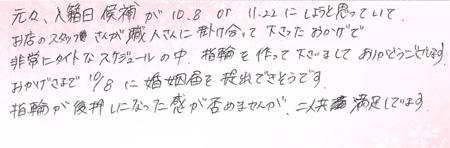 元々、入籍日候補が10.8 or 11.22にしようと思っていて、
お店のスタッフさんが職人さんに掛け合って下さったおかげで
非常にタイトなスケジュールの中、指輪を作って下さいましてありがとうございます。
おかげさまで10/8に婚姻届を提出できそうです。
指輪が後押しになった感が否めませんが、二人共満足しています。